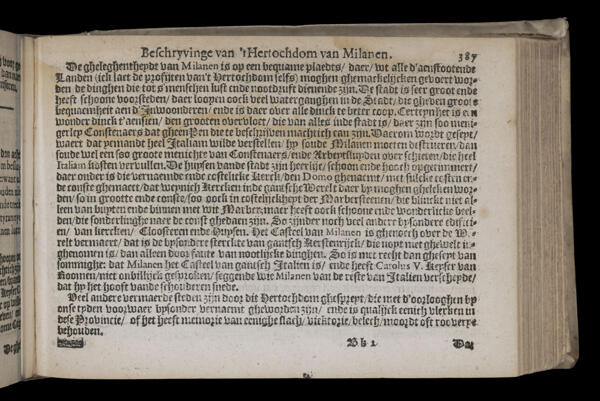 Beschryvinge van 't Hertochdom van Milanen. 387
De gheleghentheydt van Milanen is op een bequame plaedts/ daer/ wt alle d'aenstootende
Landen (ick laet de profijten van't Hertochdom selfs) moghen ghemackelijcken gevoert wor-
den de dinghen die tot s'menschen lust ende nootdrift dienende zijn. De stadt is seer groot ende
heeft schoone voorsteden/ daer loopen oock veel waterganghen in de Stadt/ die gheven groote
bequaemheyt aen d'Inwoonderen/ ende is daer over alle dinck te beter coop. Certeynheit is een
wonder dinck t'aensien/ den grooten overvloet/ die van alles inde stadt is/ daer zijn soo meni-
gerley Constenaers dat gheen Pen die te beschrijven machtich can zijn. Daerom wordt geseyt/
waert dat yemandt heel Italiam wilde verstellen/ hy soude Milanen moeten destrueren/ dan
soude wel een soo groote menichte van Constenaers/ ende Arbeytsluyden over schieten/ die heel
Italiam ... vervullen. De huysen vande stadt zijn heerlijc/ schoon ende hooch opghemuert/
daer onder is die vernaemde ende costelijcke kerck/ den Domo ghenaemt/ met sulcke costen en-
de conste ghemaect/ dat weynich Kercken inde gantsche Werelt daer by moghen gheleken wor-
den/ so in grootte ende conste/ soo oock in costelijckheyt der Marbersteenen/ die blinckt niet al-
leen van buyten ende binnen met wit Marber/ maer heeft oock schoone ende wonderlicke beel-
den/ die sonderlinghe naer de const ghedaen zijn. So zijnder noch veel ander bysondere edifici-
en/ van kercken/ Cloosteren ende Huysen. Het Casteel van Milanen is ghenoech over de We-
relt vermaert/ dat is de bysondere sterckte van gantsch Kerstenrijck/ die noyt met ghewelt in-
ghenomen is/ dan alleen door faute van nootlijcke dinghen. So is met recht dan gheseyt van
sommighe dat Milanen het Casteel van gantsch Italien is/ ende heeft Carolus V. Keyser van
Roomen/ niet onbillijck gesproken/ seggende wie Milanen van de reste van Italien verscheyde/
dat hy het hooft vande schouderen snede.
Veel andere vermaerde steden zijn door dit Hertochdom ghespreyt/ die met d'oorlooghen by
onse tyden voorwaer bysonder vernaemt gheworden zijn/ ende is qualijck eenich vlecken in
dese Provincie/ of het heeft memorie van eenighe slach/ victorie/ belech/ moordt oft rooverye
behouden.
Bb 2 Dat